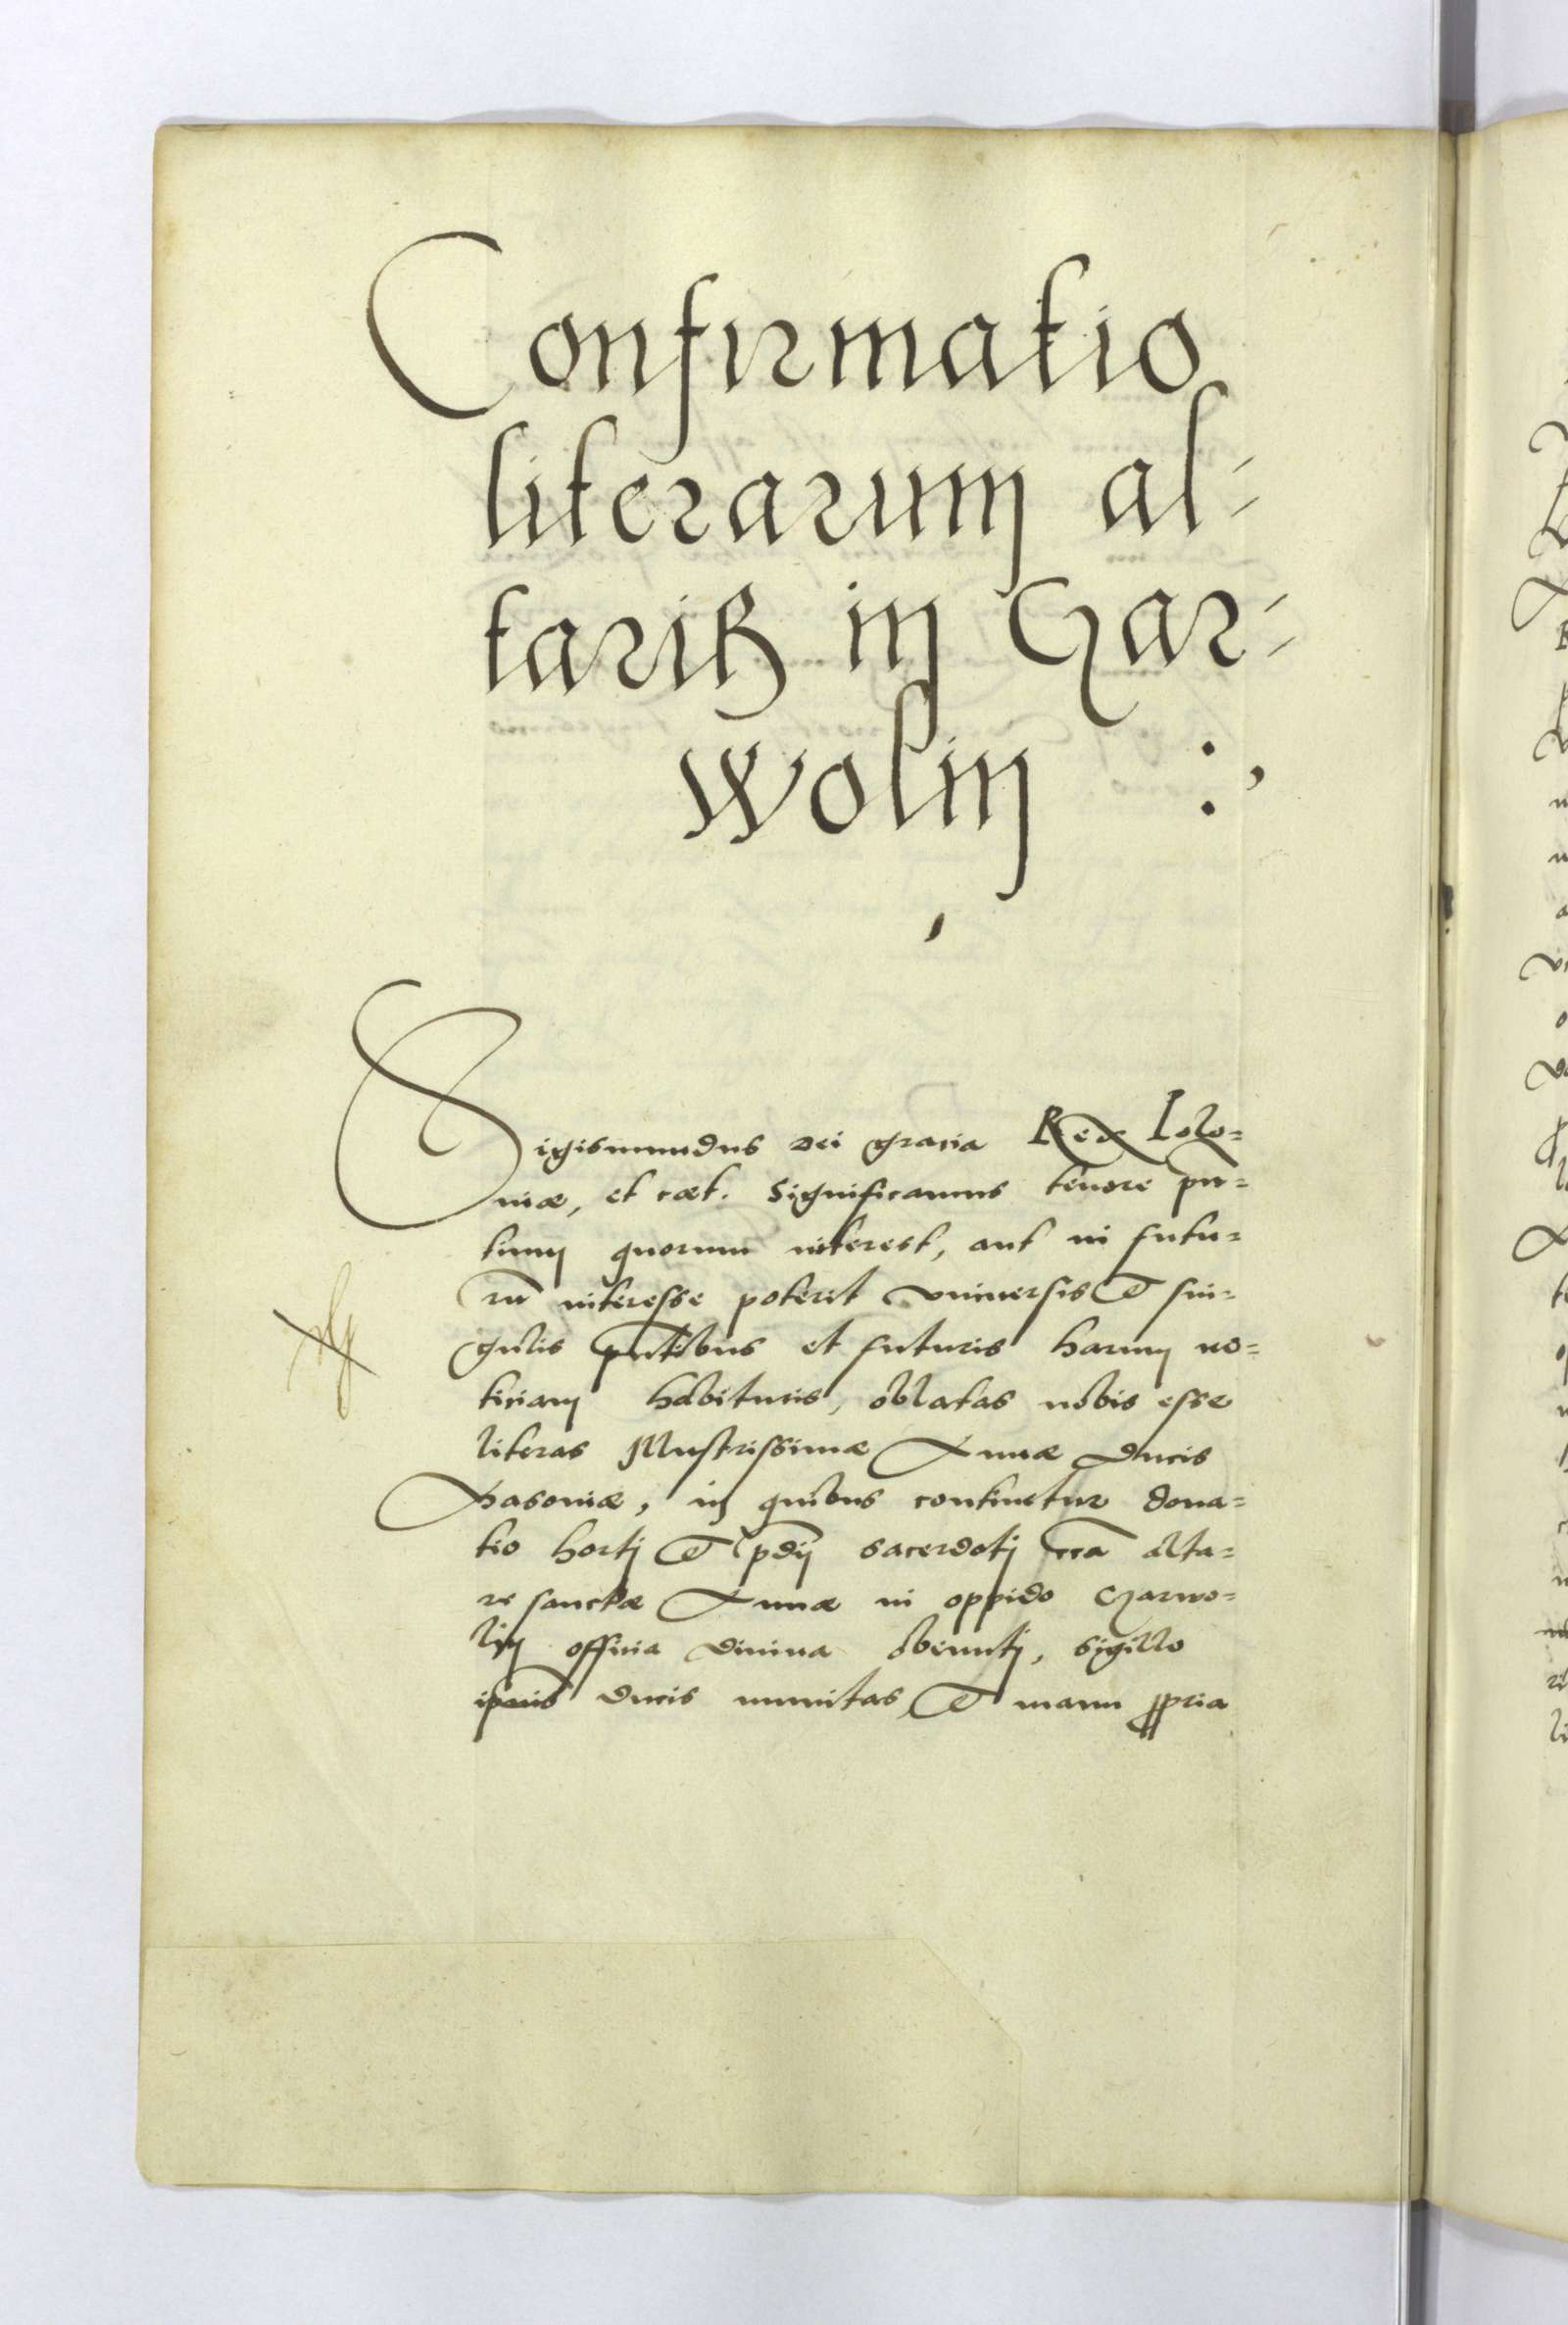 Confirmatio
literarum al-
tariß in Gar-
wolin :,
Sigismundus Dei gracia Rex Polo=
niæ, et cæt. Significamus tenore pn=
tium quorum interest, aut in futu=
rũ interesse poterit vniuersis et sin=
gulis pntibus et futuris harum no=
ticiam habituris, oblatas nobis esse
literas Illustrissimæ Annæ Ducis
Masouiæ, in quibus continetur dona=
tio horti et pdij sacerdoti cca alta=
re sanctæ Annæ in oppido Garwo=
lin officia diuina obeunti, sigillo
ipsius Ducis munitas et manu ppria